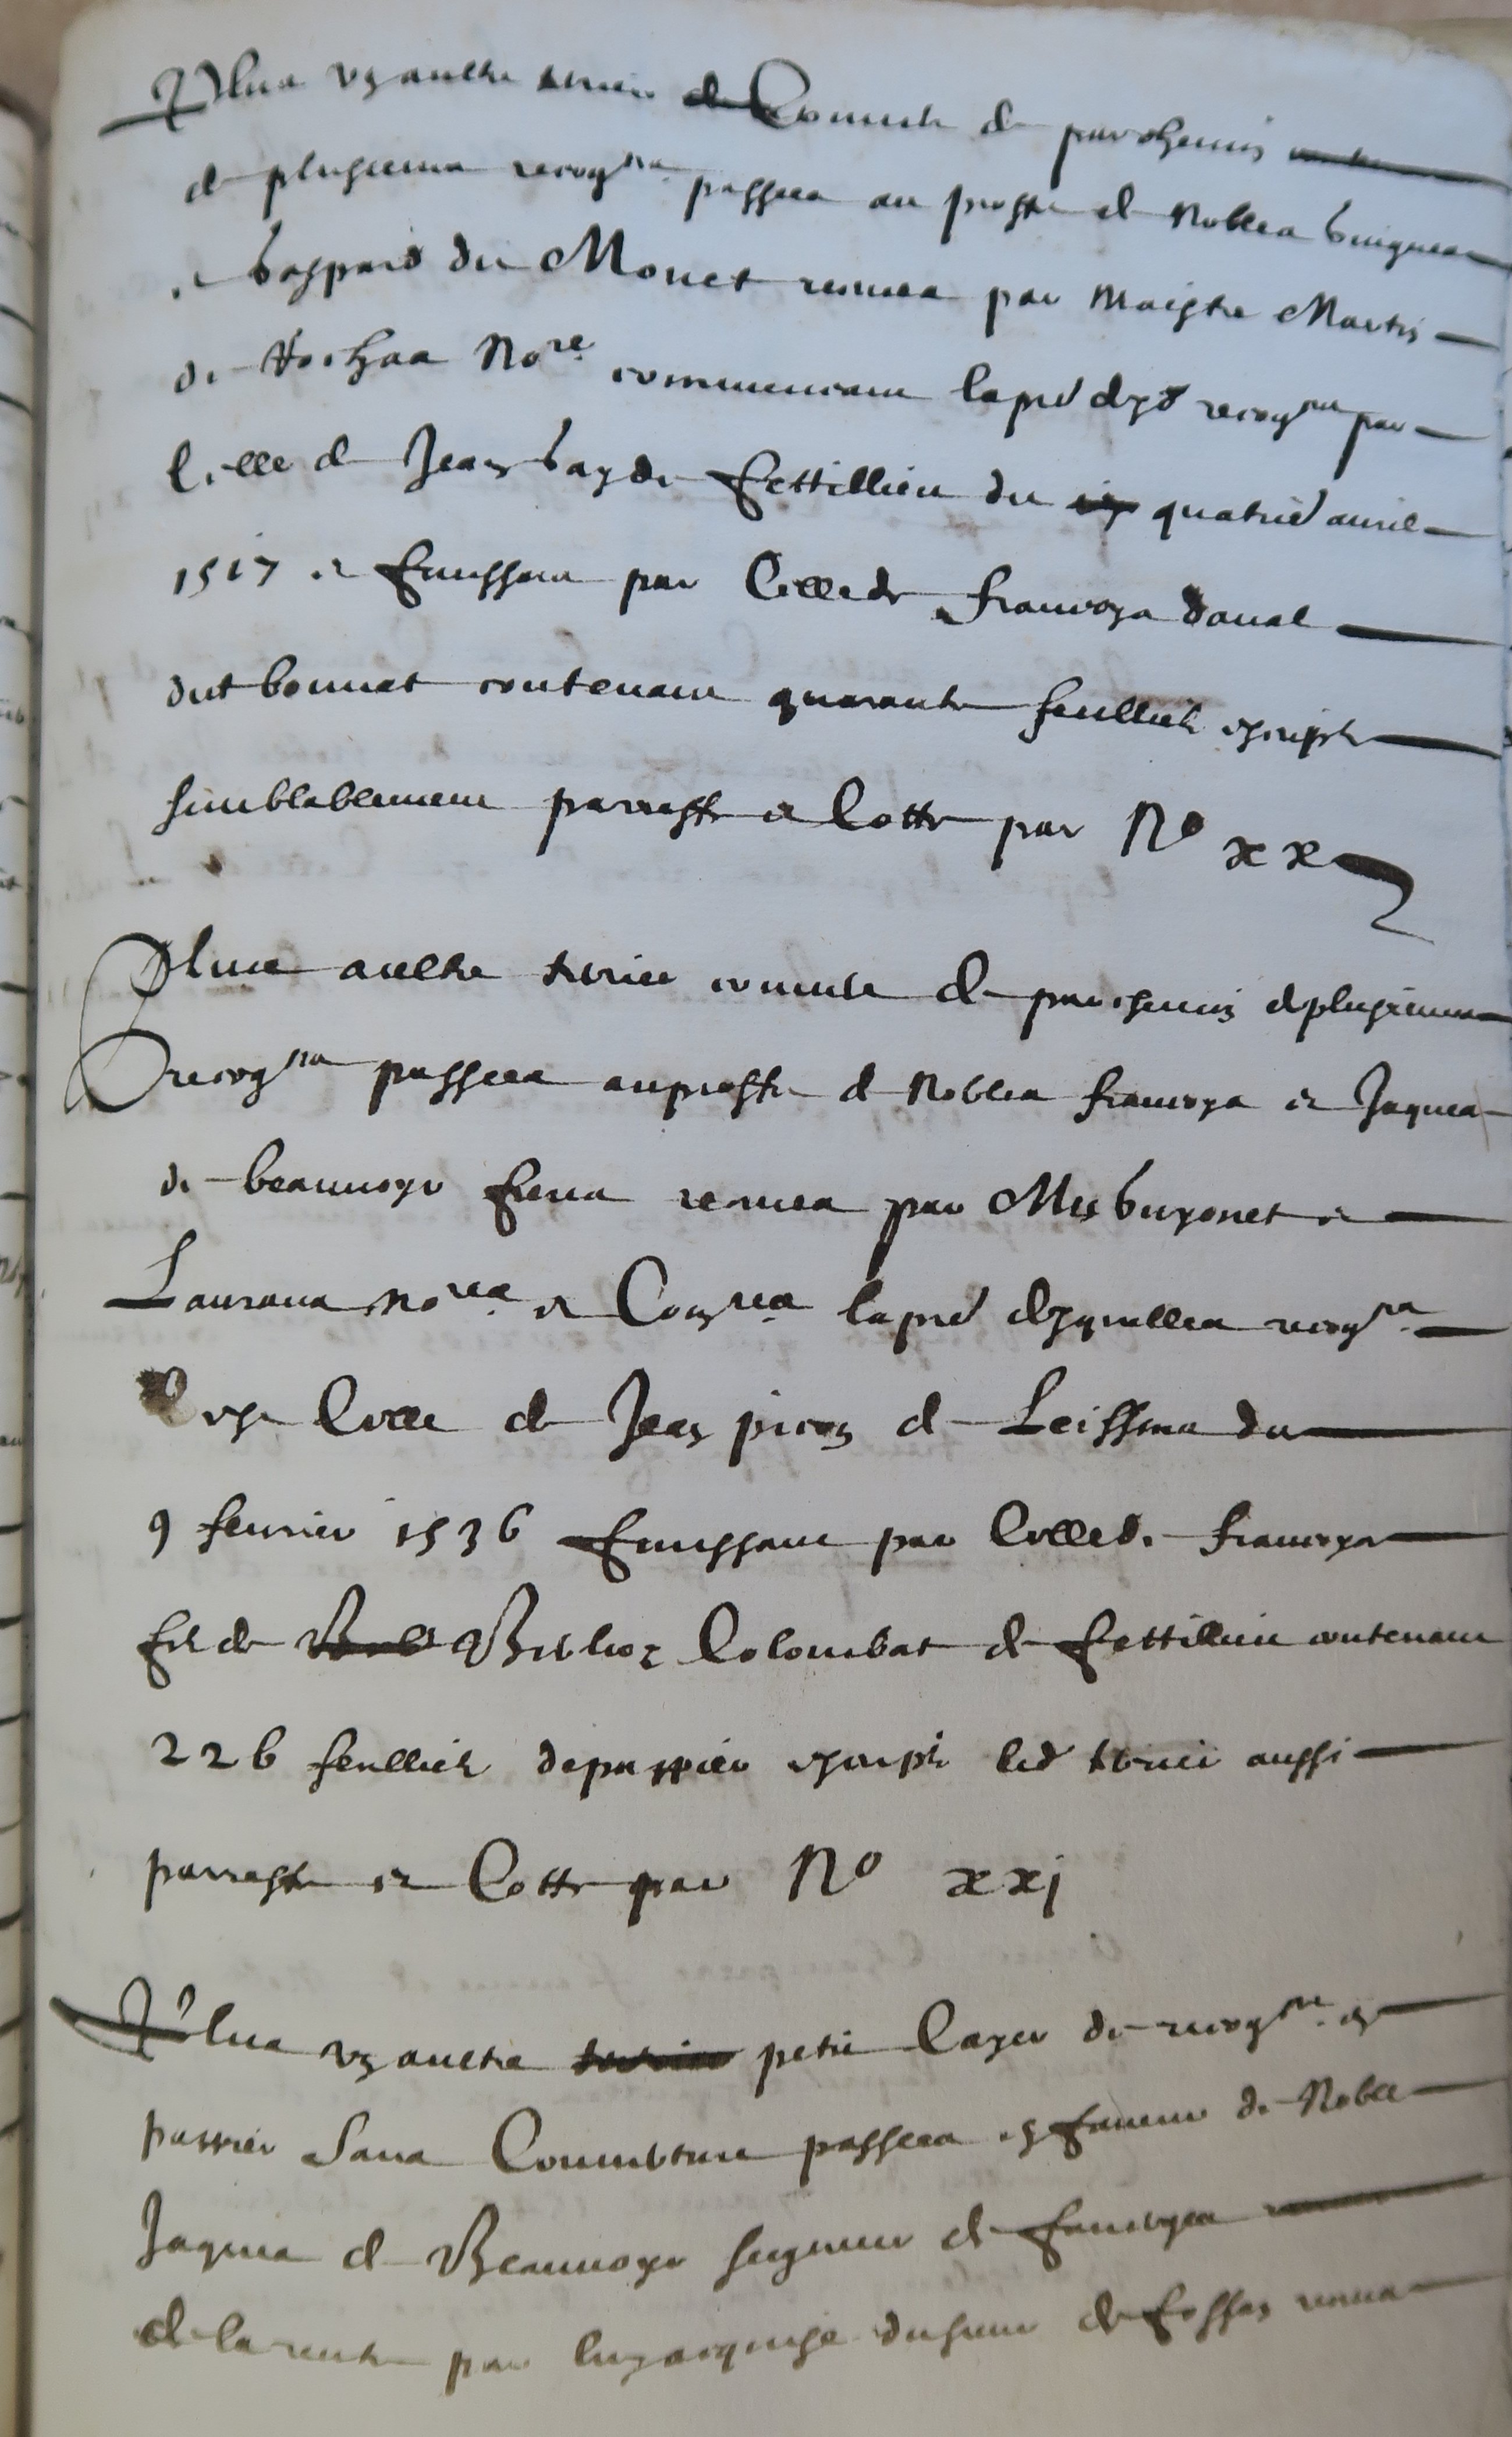 Plus ung aultre terrier de Couvert de parchemin
de plusieurs recog.nes passees au proffit de Nobles
et gaspard du Monet receues par Maistre Martin
de No.re commenceant la pre d'yc recog.nes par
celle de Jean de Fettillieu du quatrie avril
1517 et finissant par Celle de francoys
dict bonnet contenant quarante feullietz escriptz
semblablement parraffe et Cotte par No xx
Plus aultre terrier couvert de parchemin de plusieurs
recog.nes passees au proffit de Nobles francoys et Jaques
de beauvoyr freres receues par Mes et
Laurans no.res et Com.res la pre d'ycquelles recog.nes
Celle de Jean de Leissins du
9 febvrier 1536 finissant par Celle de francoys
fils de Colombat de Fettillieu contenant
226 feullietz de pappier escriptz led terrier aussi
parraffe et Cotte par No xxj
Plus ung aultre terrier petit Cayer de recog.nes en
pappier Sans Couverture passees en faveur de Noble
Jaques de Beauvoyr seigneur de Faverges
de la rente par luy acquise du sieur de receues